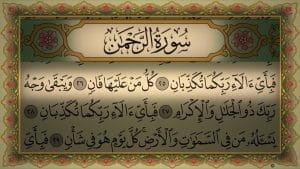 سُورَةُ الرَّحْمَٰن
فَبِأَيِّ ءَالَآءِ رَبِّكُمَا تُكَذِّبَانِ ﴿٢٥﴾ كُلُّ مَنْ عَلَيْهَا فَانٍ ﴿٢٦﴾ وَيَبْقَىٰ وَجْهُ
رَبِّكَ ذُو ٱلْجَلَٰلِ وَٱلْإِكْرَامِ ﴿٢٧﴾ فَبِأَيِّ ءَالَآءِ رَبِّكُمَا تُكَذِّبَانِ ﴿٢٨﴾
يَسْـَٔلُهُۥ مَن فِى ٱلسَّمَٰوَٰتِ وَٱلْأَرْضِ ۚ كُلَّ يَوْمٍ هُوَ فِى شَأْنٍ ﴿٢٩﴾ فَبِأَيِّ